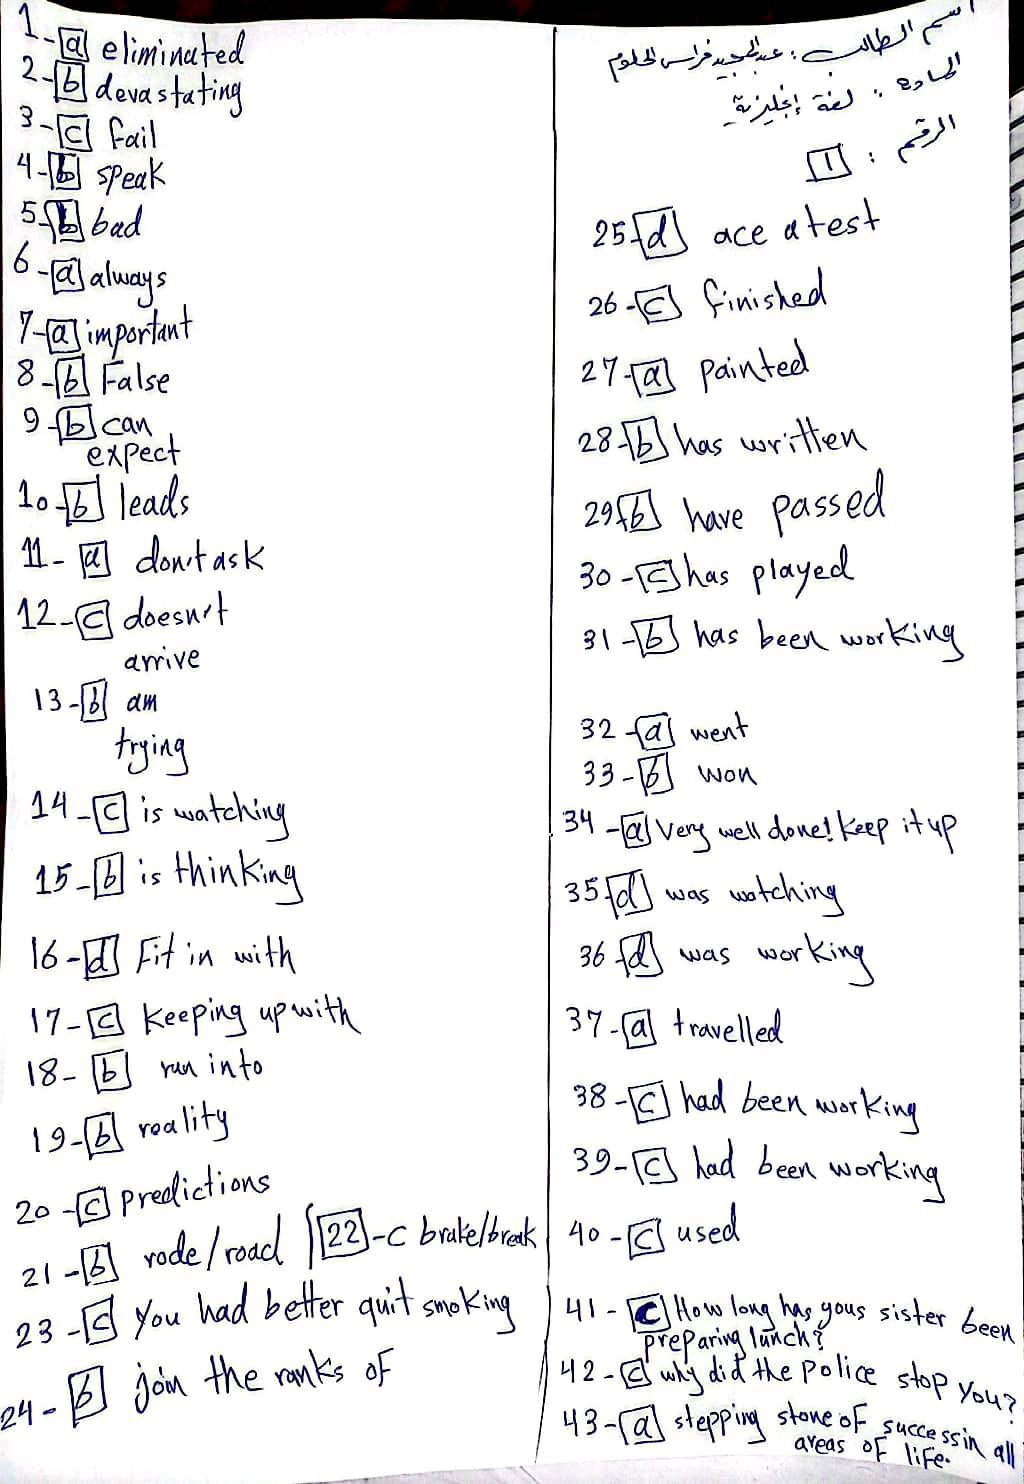 1-a eliminated
2-b devastating
3-c fail
4-b speak
5-b bad
6-a always
7-a important
8-b False
9-b can
expect
10-b leads
11- a don't ask
12-c doesn't
arrive
13-b am
trying
14-c is watching
15-b is thinking
16-d Fit in with
17-c keeping up with
18-b run into
19-b reality
20-c predictions
21-b rode/road 22-c brake/break
23-c You had better quit smoking
24-b join the ranks of
اسم الطالب: عبدالمجيد فراس الحلوم
المادة: لغة إنجليزية
الرقم: 1
25-d ace a test
26-c finished
27-a painted
28-b has written
29-b have passed
30-c has played
31-b has been working
32-a went
33-b won
34-a Very well done! Keep it up
35-d was watching
36-d was working
37-a travelled
38-c had been working
39-c had been working
40-c used
41-c How long has yous sister been
preparing lunch?
42-c why did the police stop you?
43-a stepping stone of success in all
areas of life.